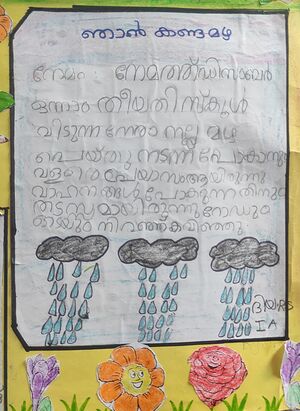 ഞാൻ കണ്ട മഴ
നേമം നേമത്ത് ഡിസംബർ
ഒന്നാം തീയതി സ്കൂൾ
വിടുന്ന നേരം നല്ല മഴ
പെയ്തു നടന്ന് പോകാനും
വളരെ പ്രയാസം ആയിരുന്നു
വാഹനങ്ങൾ പോകുന്നതിനും
തടസ്സമായിരുന്നു റോഡും
ഓടയും നിറഞ്ഞ് കവിഞ്ഞു
I A